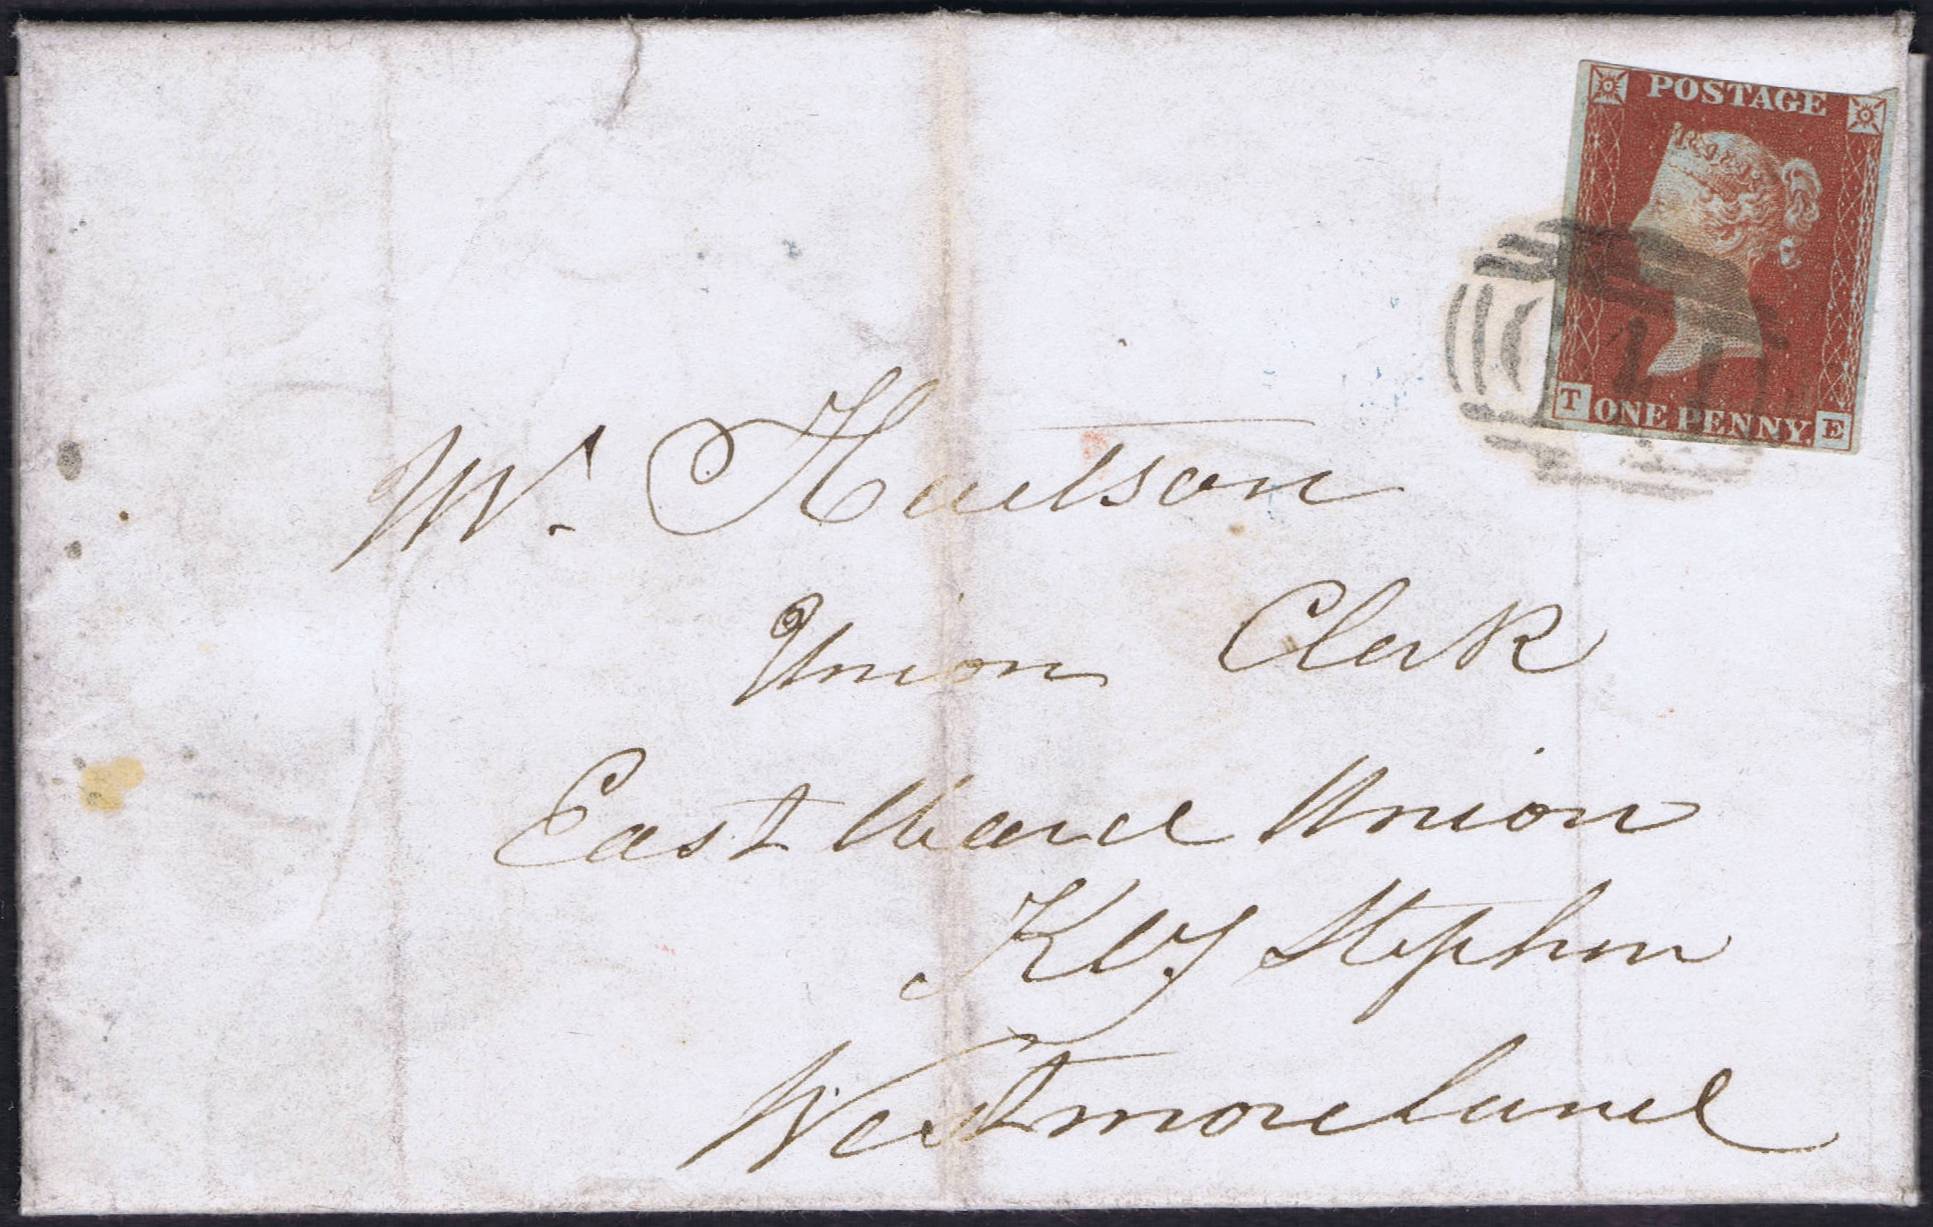 POSTAGE
T ONE PENNY. E
Mr. Hewtson
Union Clerk
East Ward Union
Kby Stephen
Westmoreland